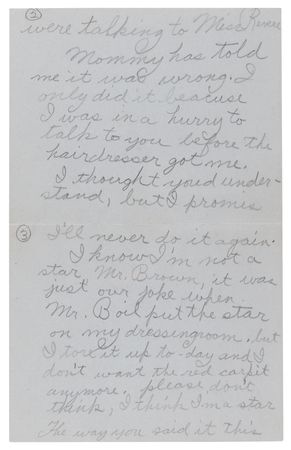 (2)
were talking to Miss Renee
Mommy has told
me it was wrong. I
only did it beacuse
I was in a hurry to
talk to you before the
hairdresser got me.
I thought youd under-
stand, but I promis
(3)
I'll never do it again.
I know I'm not a
star Mr. Brown, it was
just our joke when
Mr. Boil put the star
on my dressingroom. but
I tore it up to-day and I
don't want the red carpit
anymore. please don't
think, I think I'm a star
The way you said it this